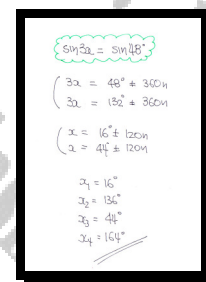 sin3x = sin48°
3x = 48° ± 360n
3x = 132° ± 360n
x = 16° ± 120n
x = 44° ± 120n
x₁ = 16°
x₂ = 136°
x₃ = 44°
x₄ = 164°